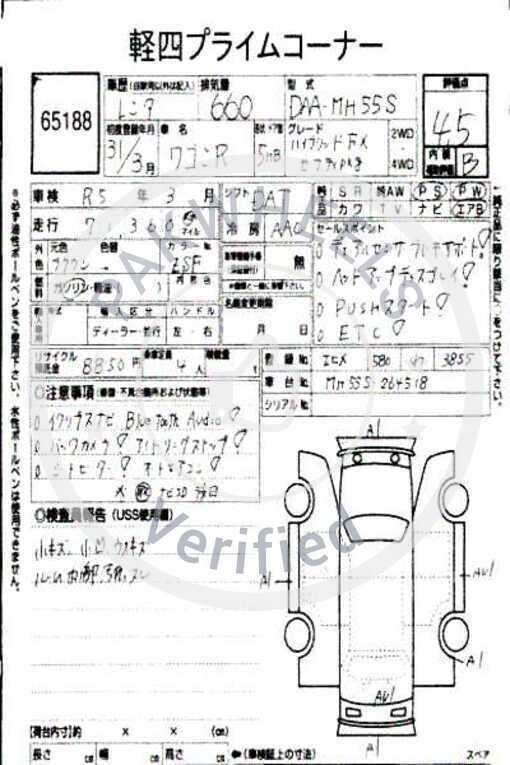 軽四プライムコーナー
65188
車歴 (自家用以外は記入) レンタ
排気量 660
型式 DAA-MH55S
評価点 4.5
初度登録年月 31/3月
車名 ワゴンR
ドア形状 5HB
グレード ハイブリッドFX セフティpkg
2WD
4WD
内装 B
車検 R5年3月
シフト DAT
純正品 SR 純AW PS PW
カワ TV ナビ エアB
走行 71,360 km マイル
冷房 AAC
セールスポイント
外色 元色 色替 カラーNo.
ブラウン → ESF
内装色
燃料 ガソリン・軽油
車歴 無
デュアルセンサブレーキサポート!
ヘッドアップディスプレイ!
PUSHスタート!
ETC!
輸入区分 ハンドル
ディーラー・並行 左・右
名義変更期限 月 日
リサイクル預託金 8850円
乗車定員 4人
積載量
登録No. エヒメ 580 3855
車台No. MH55S 264518
シリアルNo.
◎注意事項 (修復・不具合箇所および状態等)
イクリプスナビ Bluetooth Audio!
バックカメラ! アイドリングストップ!
シートヒーター! オートエアコン!
◎検査員報告 (USS使用欄)
小キズ、小凹、ウスキズ
A1
A1
AU1
A1
AU1
A1
【荷台内寸】約 × × (cm)
長さ cm 幅 cm 高さ cm ←(車検証上の寸法)
スペア
※必ず油性ボールペンをご使用下さい。水性ボールペンは使用できません。
PAKWHEELS
Verified